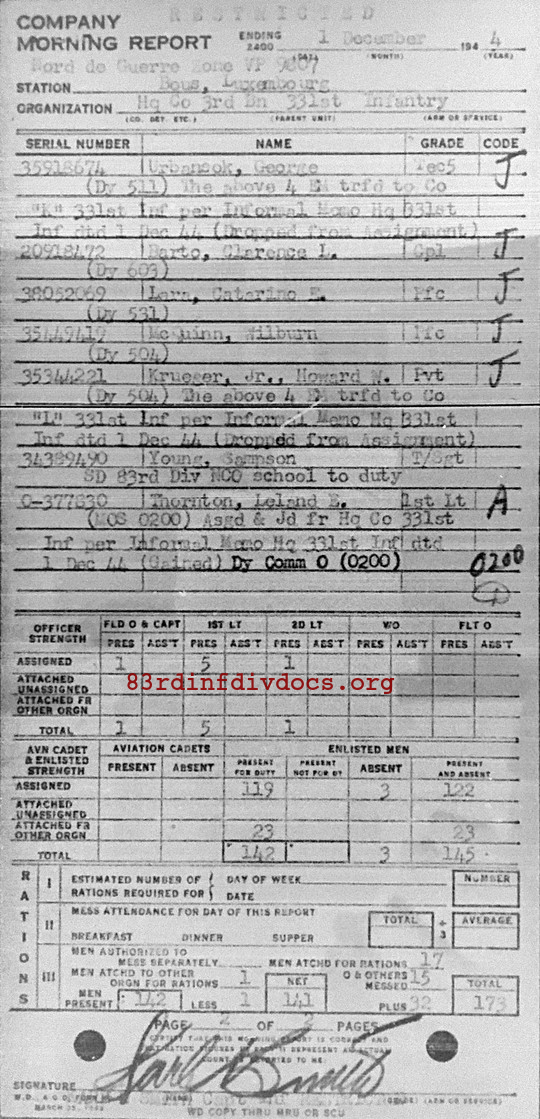 RESTRICTED
COMPANY
MORNING REPORT ENDING 2400 1 December 194 4
(DAY) (MONTH) (YEAR)
Nord de Guerre Zone VP 9807
STATION Bous, Luxembourg
ORGANIZATION Hq Co 3rd Bn 331st Infantry
(CO. DET. ETC.) (PARENT UNIT) (ARM OR SERVICE)
SERIAL NUMBER NAME GRADE CODE
35918674 Urbansok, George Tec5 J
(Dy 511) The above 4 EM trfd to Co
"K" 331st Inf per Informal Memo Hq 331st
Inf dtd 1 Dec 44 (Dropped from Assignment)
20918472 Barto, Clarence L. Cpl J
(Dy 603)
38052069 Lara, Catarino E. Pfc J
(Dy 531)
35449419 McQuinn, Wilburn Pfc J
(Dy 504)
35344221 Krueger, Jr., Howard W. Pvt J
(Dy 504) The above 4 EM trfd to Co
"L" 331st Inf per Informal Memo Hq 331st
Inf dtd 1 Dec 44 (Dropped from Assignment)
34389490 Young, Sampson T/Sgt
SD 83rd Div NCO school to duty
O-377830 Thornton, Leland E. 1st Lt A
(MOS 0200) Asgd & Jd fr Hq Co 331st
Inf per Informal Memo Hq 331st Inf dtd
1 Dec 44 (Gained) Dy Comm O (0200) 0200
OFFICER STRENGTH FLD O & CAPT 1ST LT 2D LT W/O FLT O
PRES ABS'T PRES ABS'T PRES ABS'T PRES ABS'T PRES ABS'T
ASSIGNED 1 5 1
ATTACHED UNASSIGNED
83rdinfdivdocs.org
ATTACHED FR OTHER ORGN
TOTAL 1 5 1
AVN CADET & ENLISTED STRENGTH AVIATION CADETS ENLISTED MEN
PRESENT ABSENT PRESENT FOR DUTY PRESENT NOT FOR DY ABSENT PRESENT AND ABSENT
ASSIGNED 119 3 122
ATTACHED UNASSIGNED
ATTACHED FR OTHER ORGN 23 23
TOTAL 142 3 145
RATIONS
I ESTIMATED NUMBER OF RATIONS REQUIRED FOR DAY OF WEEK DATE NUMBER
II MESS ATTENDANCE FOR DAY OF THIS REPORT TOTAL ÷ 3 AVERAGE
BREAKFAST DINNER SUPPER
III MEN AUTHORIZED TO MESS SEPARATELY MEN ATCHD FOR RATIONS 17
MEN ATCHD TO OTHER ORGN FOR RATIONS 1 NET O & OTHERS MESSED 15 TOTAL
MEN PRESENT 142 LESS 1 141 PLUS 32 173
PAGE 2 OF 2 PAGES
SIGNATURE
W.D., A.G.O. FORM
WD COPY THRU MRU OR SCU